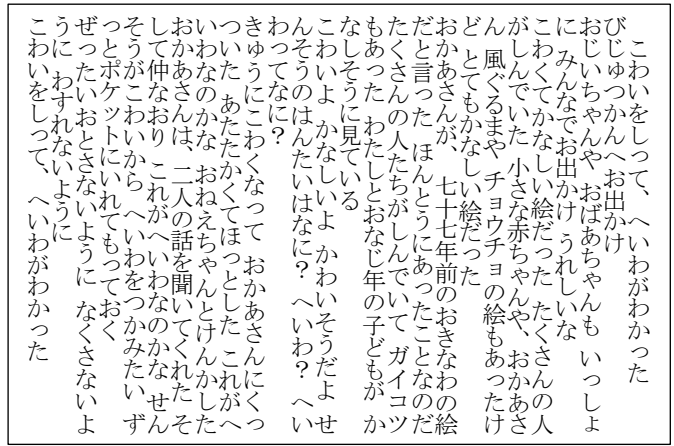 こわいをしって、へいわがわかった
びじゅつかんへお出かけ
おじいちゃんや おばあちゃんも いっしょ
に みんなでお出かけ うれしいな
こわくてかなしい絵だった たくさんの人
がしんでいた 小さな赤ちゃんや、おかあさ
ん 風ぐるまや チョウチョの絵もあったけ
ど とてもかなしい絵だった
おかあさんが、 七十七年前のおきなわの絵
だと言った ほんとうにあったことなのだ
たくさんの人たちがしんでいて ガイコツ
もあった わたしとおなじ年の子どもが か
なしそうに見ている
こわいよ かなしいよ かわいそうだよ せ
んそうのはんたいはなに? へいわ? へい
わってなに?
きゅうにこわくなって おかあさんにくっ
ついた あたたかくてほっとした これがへ
いわなのかな おねえちゃんとけんかした
おかあさんは、二人の話を聞いてくれた そ
して仲なおり これがへいわなのかな せん
そうがこわいから へいわをつかみたい ず
っとポケットにいれてもっておく
ぜったいおとさないように なくさないよ
うに わすれないように
こわいをしって、へいわがわかった